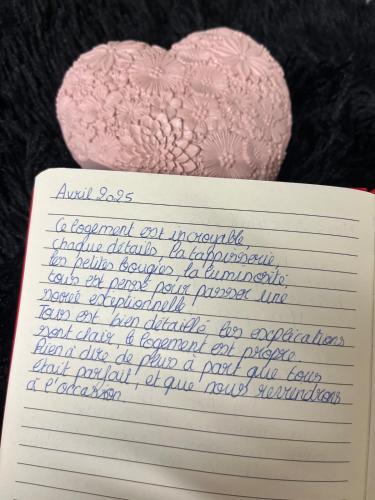 Avril 2025
Ce logement est incroyable,
chaque détails, la tappisserie,
les petites bougies, la luminosité
tous est pensé pour passer une
soirée exceptionnelle.
Tous est bien détaillé les explications
sont clair, le logement est propre.
Rien à dire de plus à part que tous
était parfait, et que nous reviendrons
à l'occasion